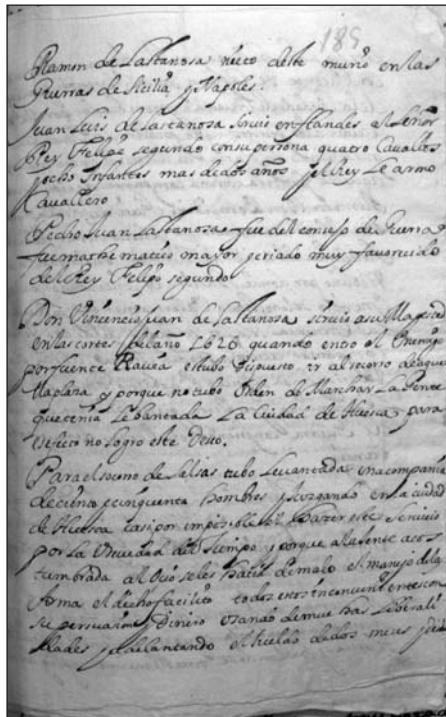 189
Ramon de Lastanosa nieto deste murio en las
Guerras de Sicilia y Napoles.
Juan Luis de Lastanosa siruio en flandes al Señor
Rey Felipe segundo con su persona quatro Cavallos
y ocho Infantes mas de dos años y el Rey le armo
Cavallero
Pedro Juan Lastanosa fue del consejo de Guerra
fue mathematico mayor y criado muy fauorecido
del Rey Felipe segundo
Don Vincencio Juan de Lastanosa siruio a su Magestad
en las cortes del año 1626 quando entro el Enemigo
por fuente Ravia estubo dispuesto ir al socorro de aque
lla plaza y porque no tubo orden de Marchar La Gente
que tenia Lebantada La Ciudad de Huesca para
este no logro este Deseo.
Para el socorro de Salsas tubo Levantada una compañia
de ciento y cinquenta hombres y Juzgando en la ciudad
de Huesca casi por imposible el hazer este seruicio
por la breuedad del tiempo y porque a la gente acos
tumbrada al Ocio se les hacia de malo el manejo de la
Arma el dicho facilito todos estos inconuenientes con
su persuasion y Dinero usando de muchas Liberali
dades y adelantando el sueldo de dos meses y